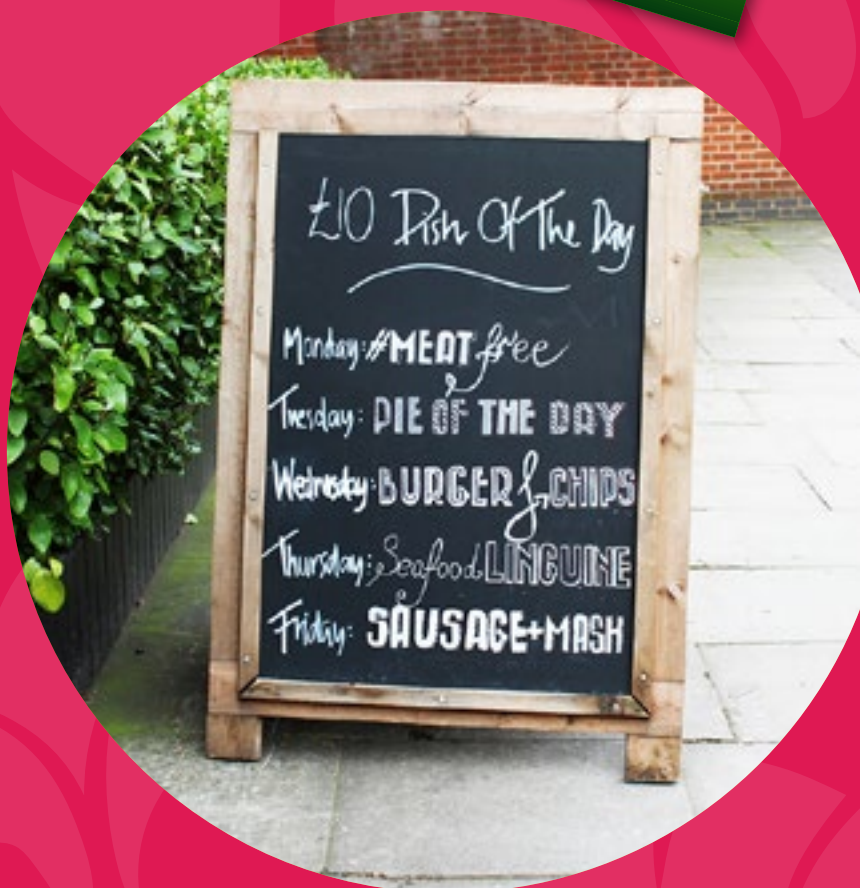 £10 Dish Of The Day
Monday: #MEAT free
Tuesday: PIE OF THE DAY
Wednesday: BURGER & CHIPS
Thursday: Seafood LINGUINE
Friday: SAUSAGE+MASH